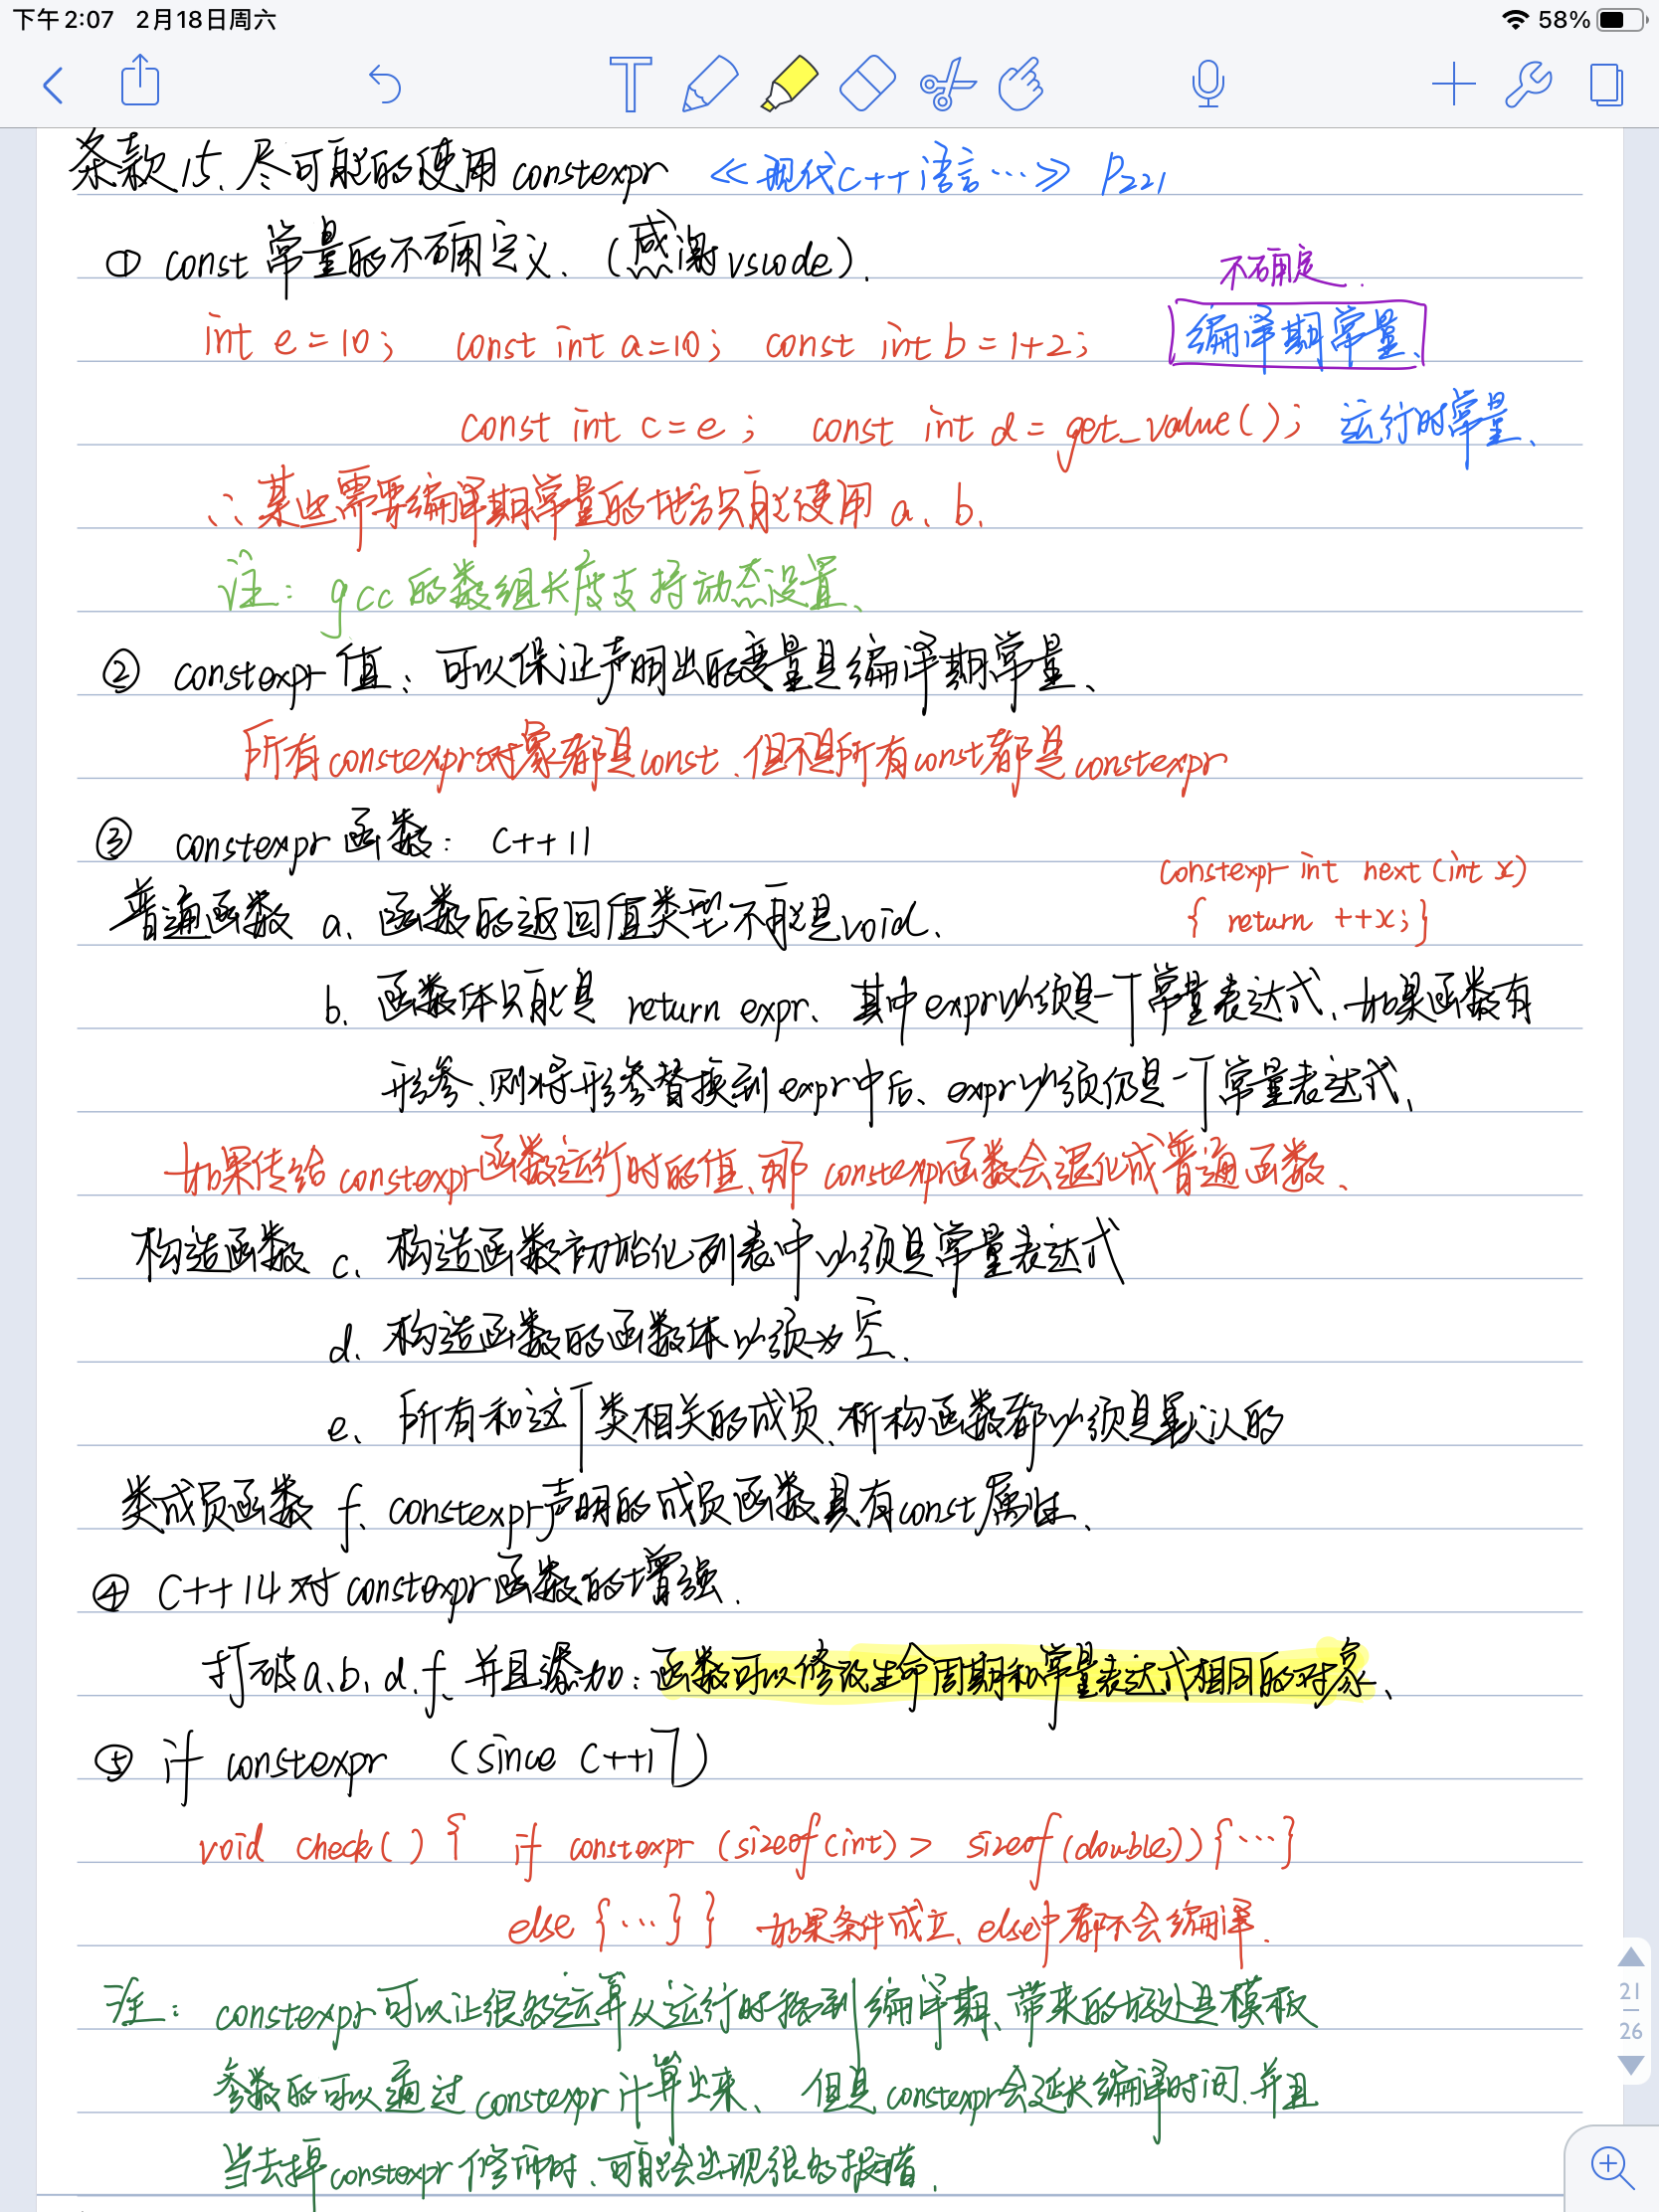 下午2:07 2月18日周六
58%
T
条款15、尽可能的使用 constexpr 《现代C++语言…》 P221
① const 常量的不确定义、(感谢vscode).
不确定.
int e=10; const int a=10; const int b=1+2; 编译期常量、
const int c=e; const int d=get_value(); 运行时常量、
∴某些需要编译期常量的地方只能使用 a、b、
注: gcc 的数组长度支持动态设置、
② constexpr 值: 可以保证声明出的变量是编译期常量、
所有constexpr对象都是const、但不是所有const都是constexpr
③ constexpr 函数: C++11
constexpr int next(int x)
普通函数 a、函数的返回值类型不能是void、
{ return ++x; }
b、函数体只能是 return expr、其中expr必须是一个常量表达式、如果函数有
形参、则将形参替换到expr中后、expr必须仍是一个常量表达式、
如果传给constexpr函数运行时的值、那constexpr函数会退化成普通函数、
构造函数 c、构造函数初始化列表中必须是常量表达式
d、构造函数的函数体必须为空、
e、所有和这个类相关的成员、析构函数都必须是默认的
类成员函数 f、constexpr声明的成员函数具有const属性、
④ C++14对constexpr函数的增强.
打破a、b、d、f、并且添加: 函数可以修改生命周期和常量表达式相同的对象、
⑤ if constexpr (since C++17)
void check() { if constexpr (sizeof(int) > sizeof(double)){…}
else {…} } 如果条件成立、else中都不会编译.
注: constexpr可以让很多运算从运行时挪到编译期、带来的好处是模板
参数的可以通过constexpr计算出来、但是constexpr会延长编译时间、并且
当去掉constexpr修饰时、可能会出现很多报错、
21
26